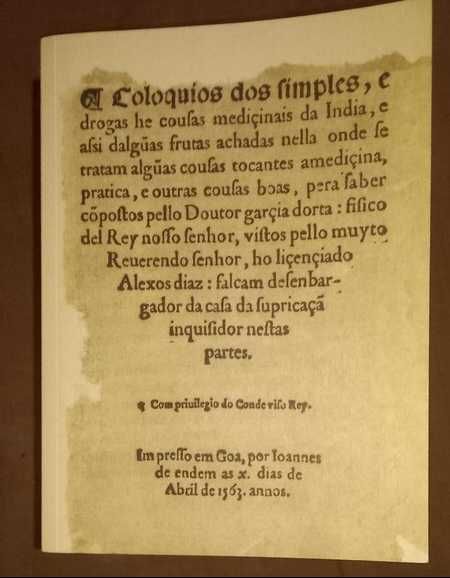 ¶ Coloquios dos ſimples, e
drogas he couſas mediçinais da India, e
aſsi dalgũas frutas achadas nella onde ſe
tratam algũas couſas tocantes amediçina,
pratica, e outras couſas boas, pera ſaber
cõpoſtos pello Doutor garçia dorta : fiſico
del Rey noſſo ſenhor, viſtos pello muyto
Reuerendo ſenhor, ho liçençiado
Alexos diaz : falcam deſenbar-
gador da caſa da ſupricaçã
inquiſidor neſtas
partes.
¶ Com priuilegio do Conde viſo Rey.
Impreſſo em Goa, por Ioannes
de endem as x. dias de
Abril de 1563. annos.